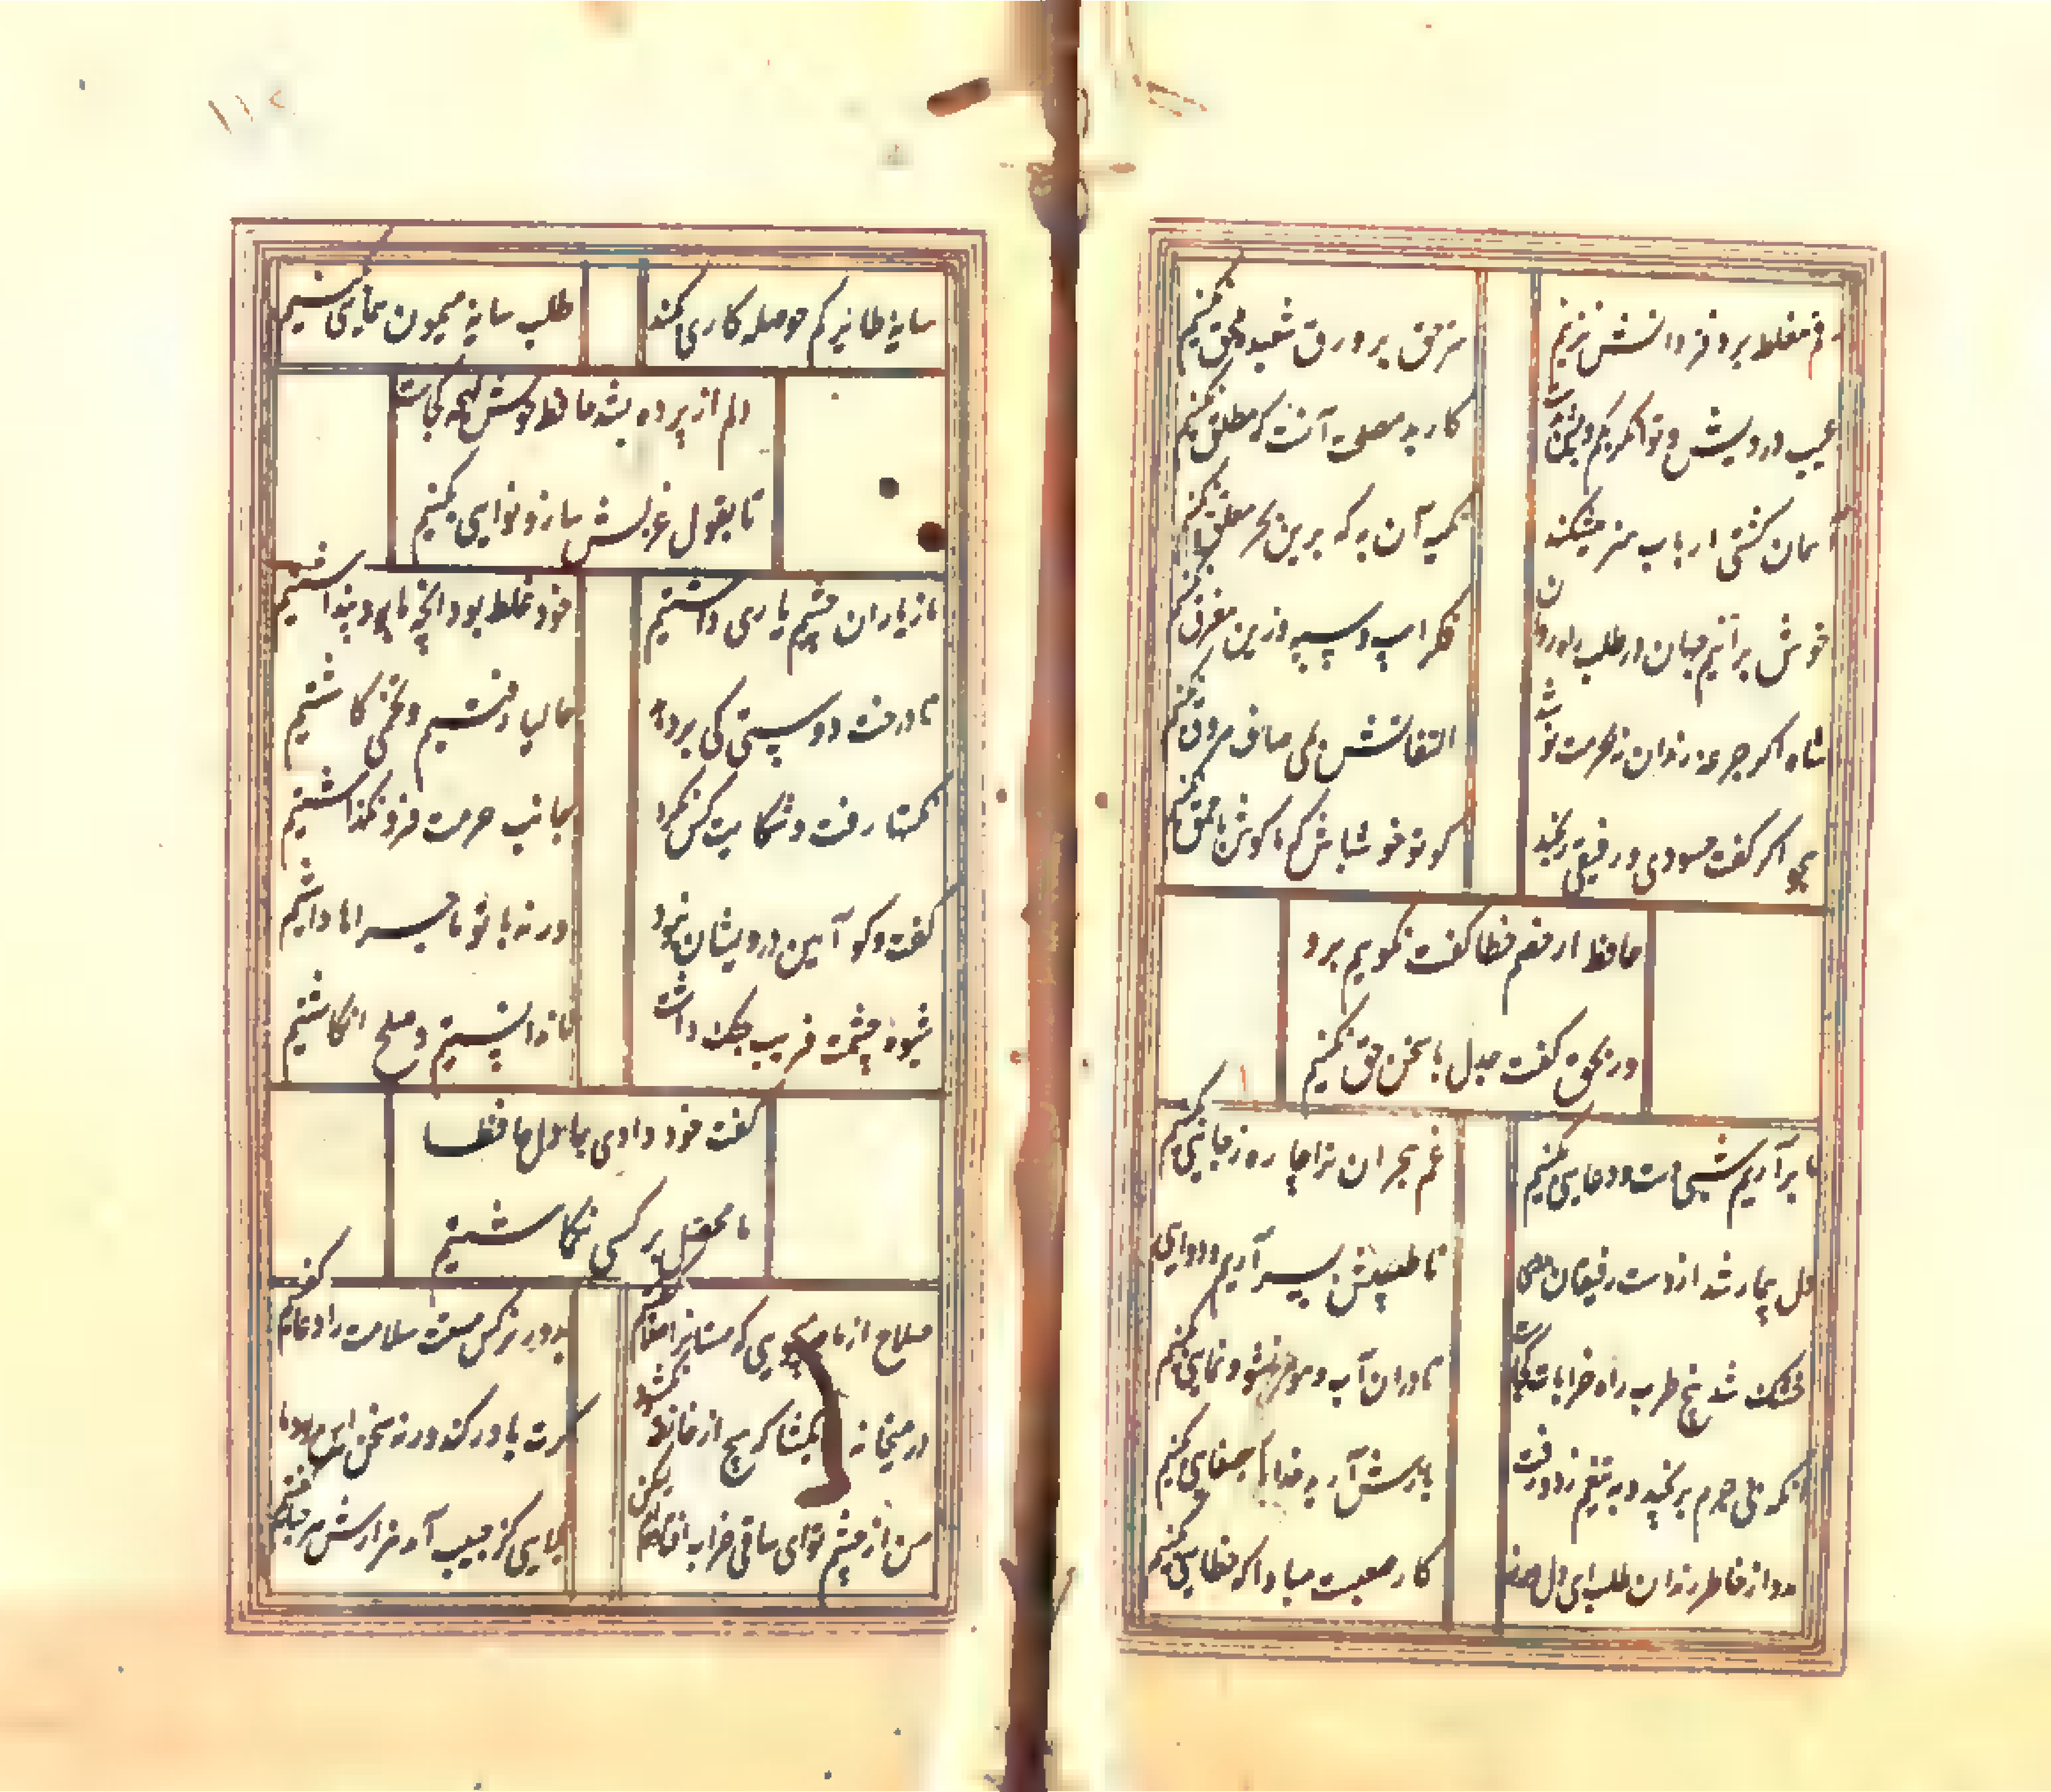 رقم مغلطه بر دفتر دانش نزنیم
سر حق بر ورق شعبده ملحق نکنیم
عیب درویش و توانگر بکم و بیش بدست
کار بد مصلحت آنست که مطلق نکنیم
آسمان کشتی ارباب هنر میشکند
تکیه آن به که برین بحر معلق نکنیم
خوش برانیم جهان در طلب راهروان
فکر اسپ سیه و زین مغرق نکنیم
شاه اگر جرعه رندان نه بحرمت نوشد
التفاتش بمی صاف مروق نکنیم
گر بدی گفت حسودی و رفیقی رنجید
گو تو خوش باش که ما گوش باحمق نکنیم
حافظ ار خصم خطا گفت نگویم برو
ور بحق گفت جدل با سخن حق نکنیم
ما برآریم شبی دست و دعایی بکنیم
غم هجران ترا چاره ز جایی بکنیم
دل بیمار شد از دست رفیقان مددی
تا طبیبش بسر آریم و دوایی بکنیم
خشک شد بیخ طرب راه خرابات کجاست
تا دران آب و هوا نشو و نمایی بکنیم
آنکه بی جرم برنجید و به تیغم زد و رفت
بازش آرید خدا را که صفایی بکنیم
مدد از خاطر رندان طلب ای دل ورنه
کار صعبست مبادا که خطایی بکنیم
سایه طایر کم حوصله کاری نکند
طلب سایه میمون همایی بکنیم
دلم از پرده بشد حافظ خوش لهجه کجاست
تا بقول غزلش ساز و نوایی بکنیم
ما ز یاران چشم یاری داشتیم
خود غلط بود آنچه ما پنداشتیم
تا درخت دوستی کی بر دهد
حالیا رفتیم و تخمی کاشتیم
نکتها رفت و شکایت کس نکرد
جانب حرمت فرو نگذاشتیم
گفت و گو آیین درویشان نبود
ورنه با تو ماجراها داشتیم
شیوه چشمت فریب جنگ داشت
ما ندانستیم و صلح انگاشتیم
گفت خود دادی بما دل حافظا
ما محصل بر کسی نگماشتیم
صلاح از ما چه میجویی که مستانرا صلا گفتیم
بدور نرگس مستت سلامت را دعا گفتیم
در میخانه بگشا که هیچ از خانقه نگشود
گرت باور کند ورنه سخن این بود ما گفتیم
من از چشم تو ای ساقی خراب افتاده‌ام لیکن
بلایی کز حبیب آمد هزارش مرحبا گفتیم